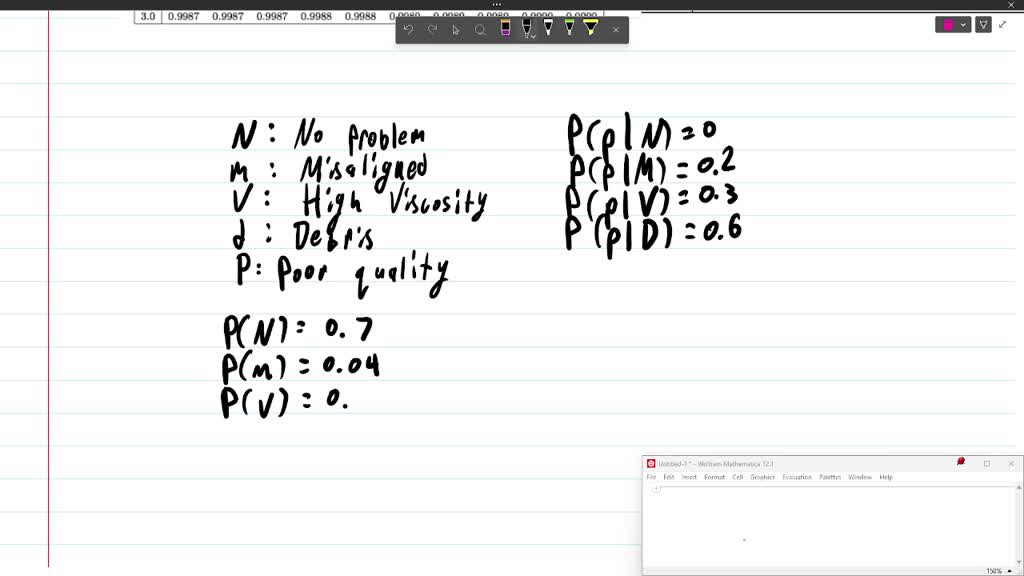 3.0 0.9987 0.9987 0.9987 0.9988 0.9988
N : No problem
m : Misaligned
V : High Viscosity
d : Debris
P: Poor quality
P(N) = 0.7
P(m) = 0.04
P(V) = 0.
P(p|N) = 0
P(p|M) = 0.2
P(p|V) = 0.3
P(p|D) = 0.6
Untitled-1 * - Wolfram Mathematica 12.1
File Edit Insert Format Cell Graphics Evaluation Palettes Window Help
150%